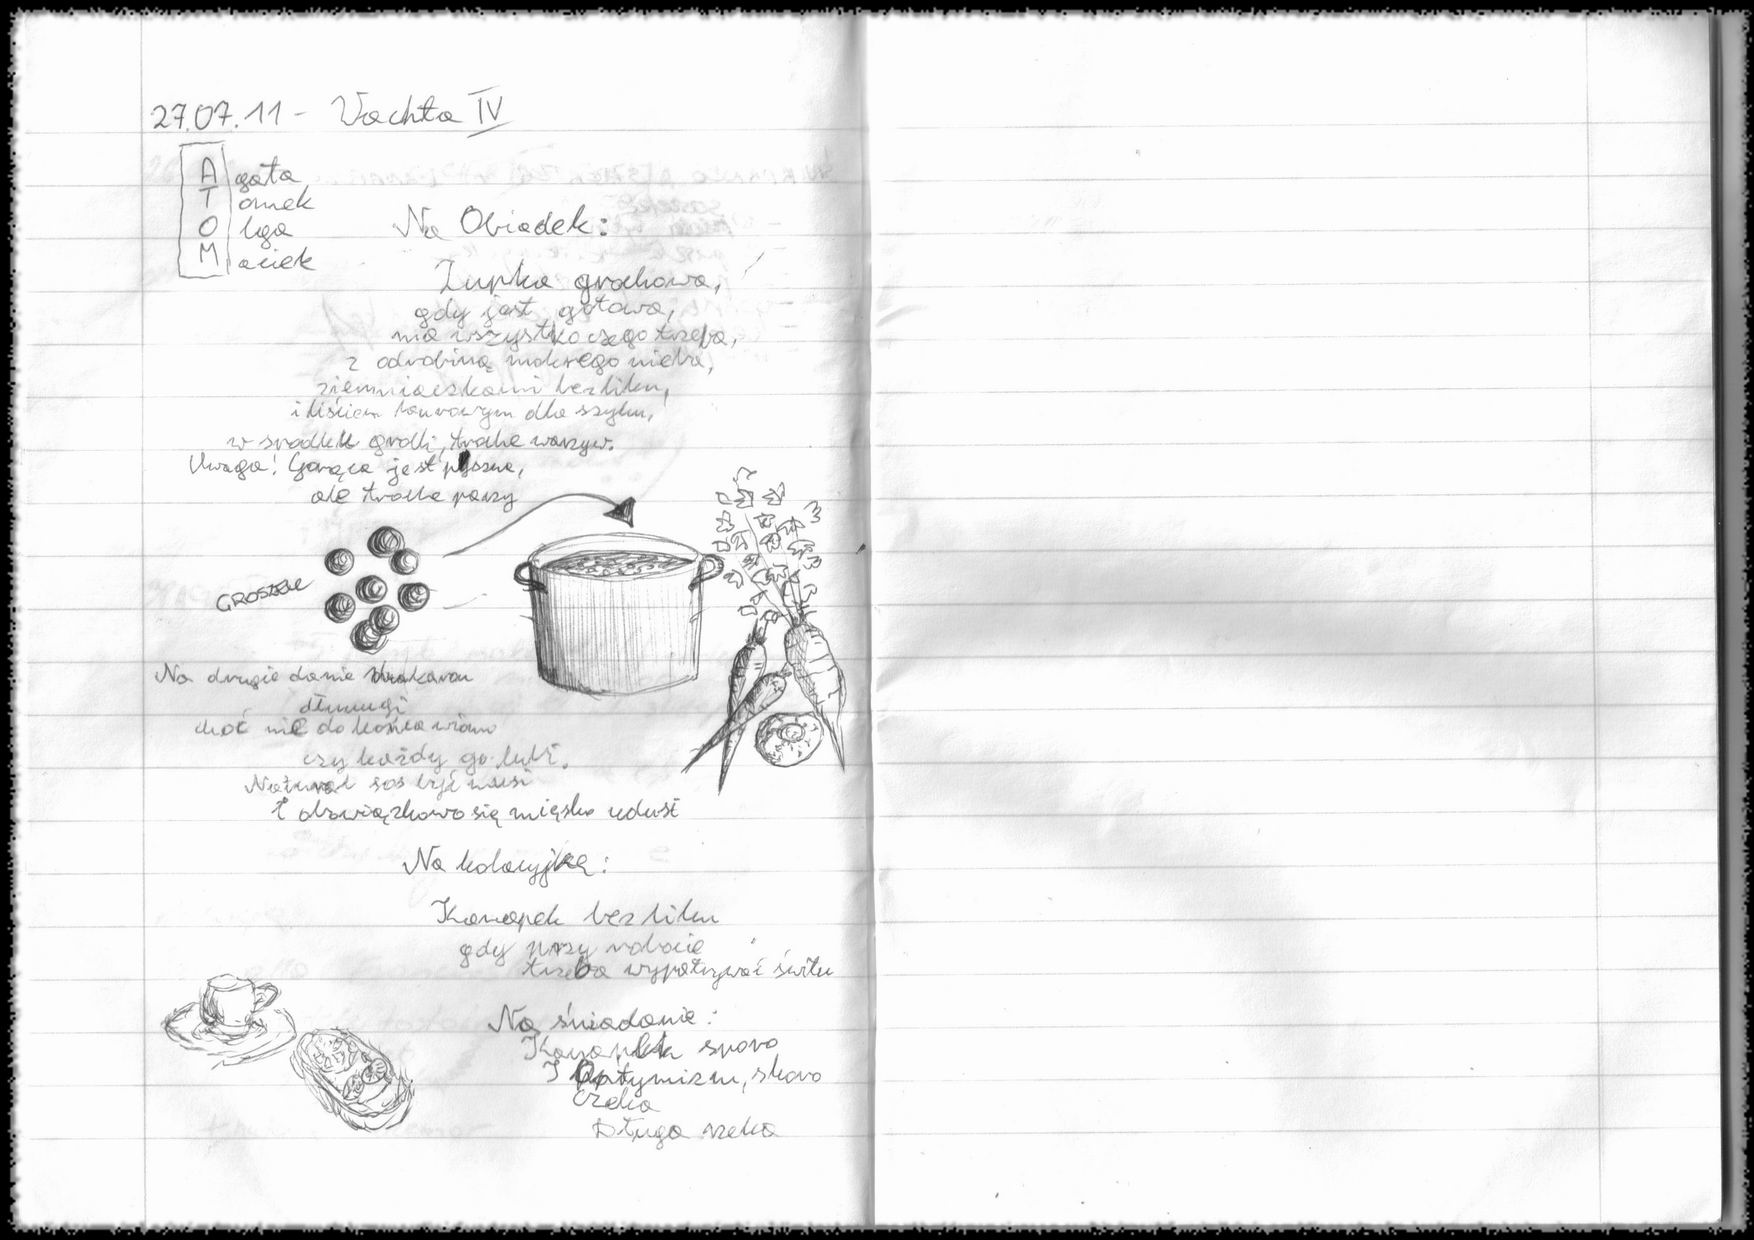 27.07.11 - Wachta IV
Agata
Tomek
Olga
Maciek
Na Obiadek:
Zupka grochowa,
gdy jest gotowa,
ma wszystko czego trzeba,
z odrobiną mokrego nieba,
ziemniaczkami bez liku,
i liściem laurowym dla szyku,
w środku groch, troche warzyw.
Uwaga! Gorąca jest pyszna,
ale troche parzy
GROSZEK
Na drugie danie makaron
długi
choć nie do końca wiamo
czy każdy go lubi.
sos być musi
I obowiązkowo się mięsko udusi
Na kolacyjkę:
Kanapek bez liku
gdy przy robocie
trzeba wypatrywać świtu
Na śniadanie:
Kanapek sporo
I Optymizm, skoro
czeka
Długa rzeka